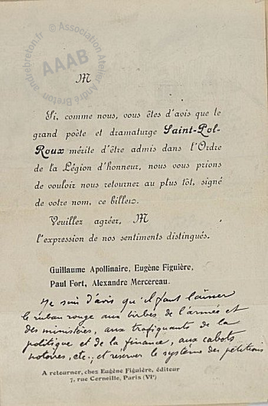 © Association Atelier André Breton
AAAB
M
Si, comme nous, vous êtes d'avis que le
grand poète et dramaturge Saint-Pol-
Roux mérite d'être admis dans l'Ordre
de la Légion d'honneur, nous vous prions
de vouloir nous retourner au plus tôt, signé
de votre nom, ce billet.
Veuillez agréer, M
l'expression de nos sentiments distingués.
Guillaume Apollinaire, Eugène Figuière,
Paul Fort, Alexandre Mercereau.
Je suis d'avis qu'il faut laisser
le ruban rouge aux birbes de l'armée et
des ministères, aux trafiquants de la
politique et de la finance, aux cabots
notoires, etc., et réserver le système des pétitions
A retourner, chez Eugène Figuière, éditeur
7, rue Corneille, Paris (VIe)